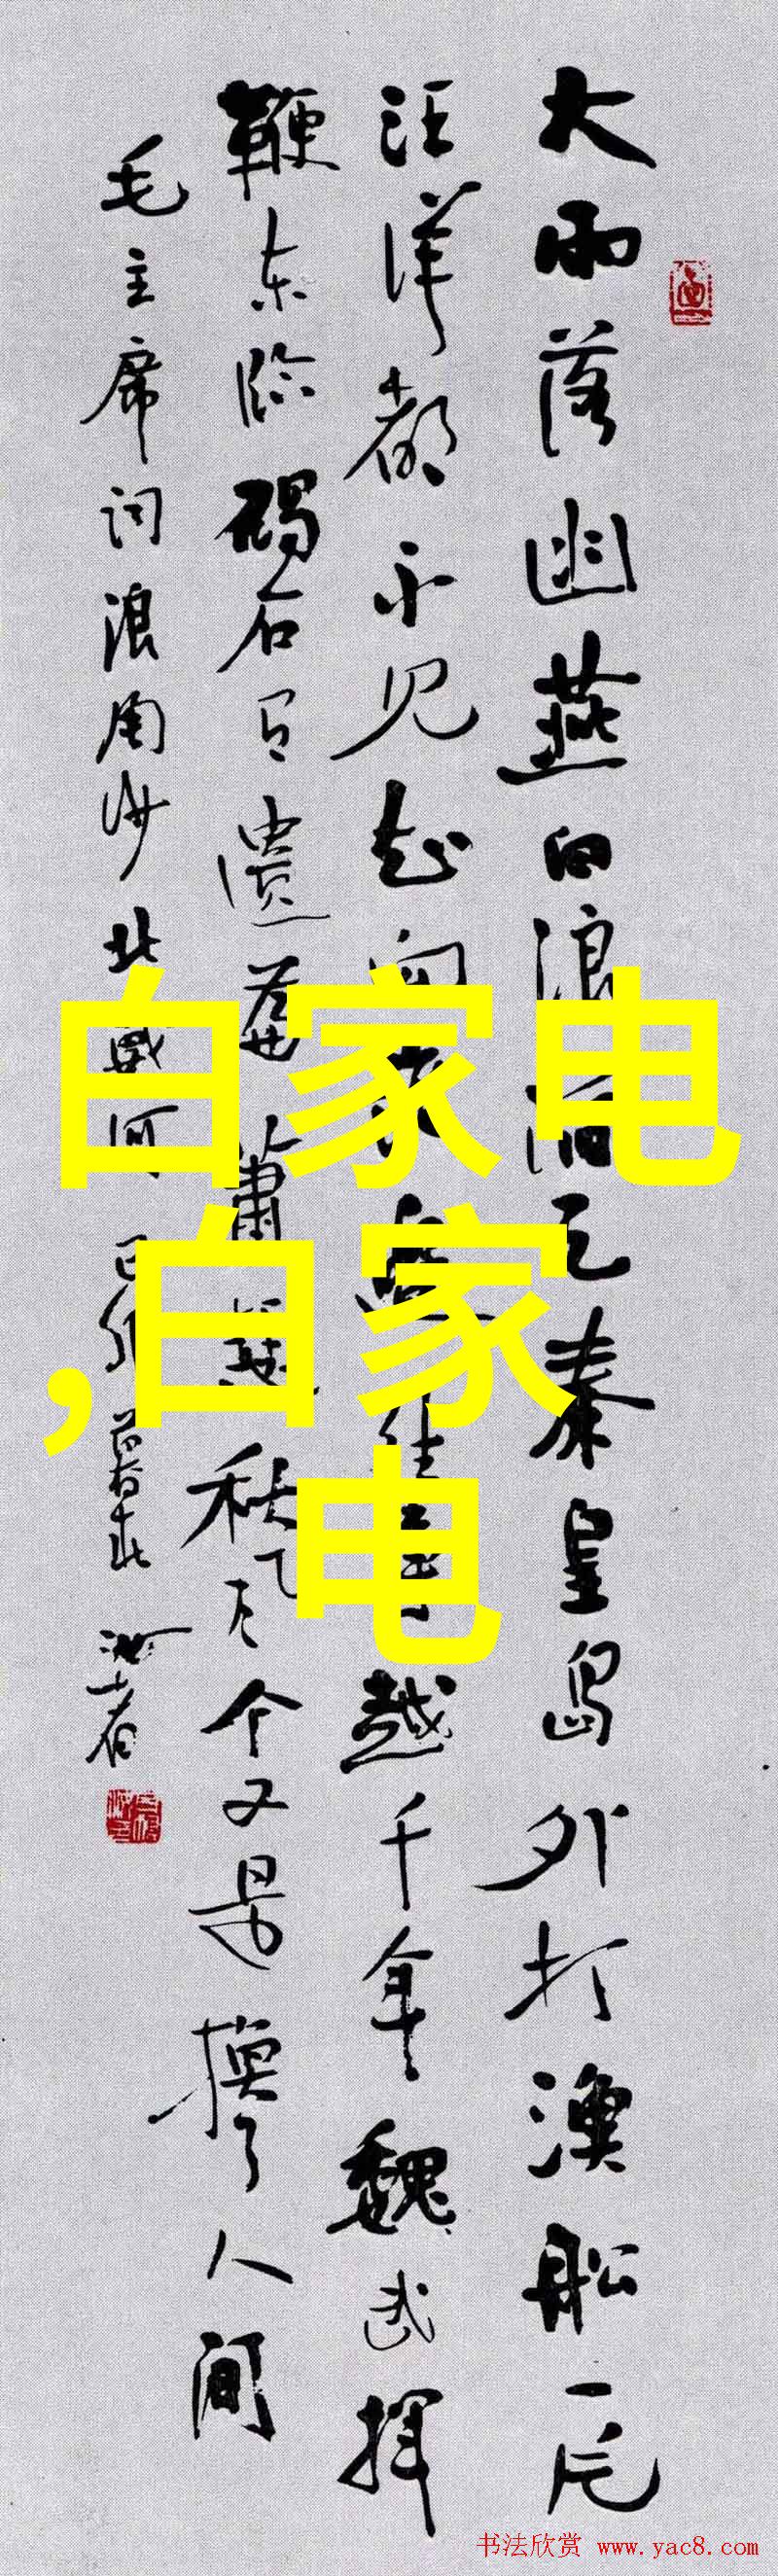 白家电
,白家
电
大雨落幽燕白浪滔天秦皇岛外打漁船一片
汪洋都不见知向越千年魏武揮
鞭东临碣石有遗篇萧瑟秋风今又是換了人间
毛主席词浪淘沙北戴河 己卯暮春
书法欣赏 www.yac8.com